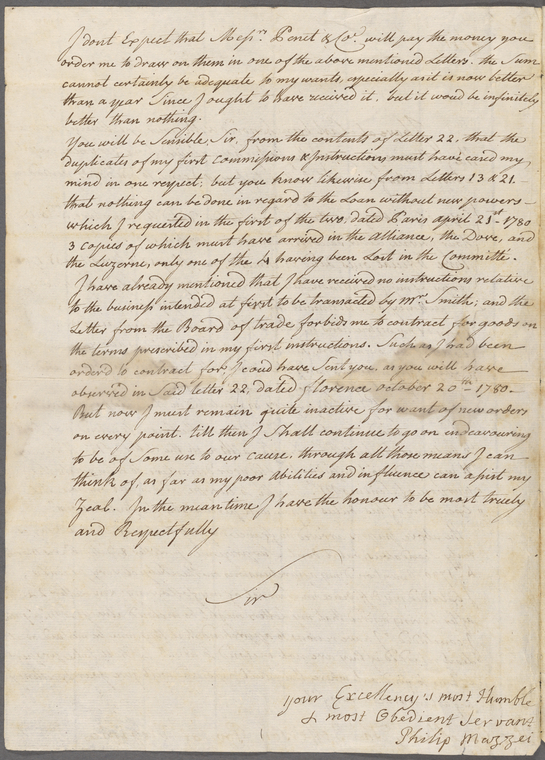 I dont Expect that Mess.rs Penet & Co. will pay the money you
order me to draw on them in one of the above mentioned Letters. the Sum
cannot certainly be adequate to my wants, especially as it is now better
than a year Since I ought to have received it. but it woud be infinitely
better than nothing.
You will be Sensible, Sir, from the contents of Letter 22, that the
duplicates of my first Commissions & Instructions must have eased my
mind in one respect: but you know likewise from Letters 13 & 21.
that nothing can be done in regard to the Loan without new powers
which I requested in the first of the two, dated Paris april 21st 1780
3 copies of which must have arrived in the Alliance, the Dove, and
the Luzerne, only one of the 4 having been Lost in the Committe.
I have already mentioned that I have received no instructions relative
to the business intended at first to be transacted by Mr. Smith; and the
Letter from the Board of trade forbids me to contract for goods on
the terms prescribed in my first instructions. Such as I had been
orderd to contract for, I coud have Sent you, as you will have
observed in Said letter 22, dated florence October 20th 1780.
But now I must remain quite inactive for want of new orders
on every point. till then I Shall continue to go on endeavouring
to be of Some use to our cause, through all those means I can
think of, as far as my poor abilities and influence can assist my
Zeal. In the meantime I have the honour to be most truely
and Respectfully
Sir
your Excellency's most Humble
& most Obedient Servant
Philip Mazzei